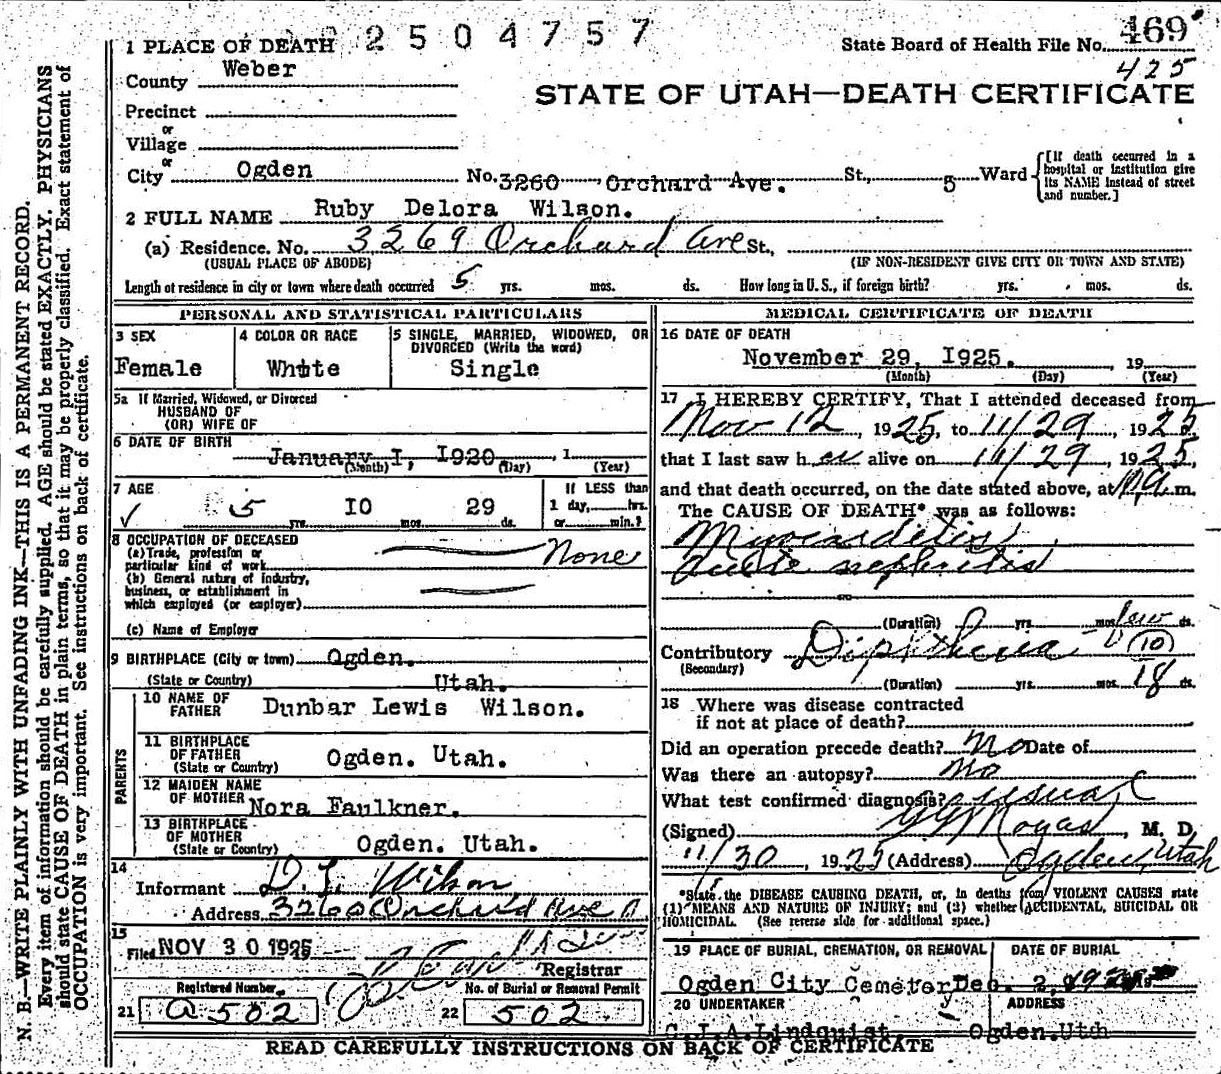 2504757
1 PLACE OF DEATH
State Board of Health File No. 469
425
County Weber
STATE OF UTAH—DEATH CERTIFICATE
Precinct
or
Village
or
City Ogden No. 3260 Orchard Ave. St., 5 Ward
[If death occurred in a hospital or institution give its NAME instead of street and number.]
2 FULL NAME Ruby Delora Wilson.
(a) Residence. No. 3269 Orchard Ave St.,
(USUAL PLACE OF ABODE) (IF NON-RESIDENT GIVE CITY OR TOWN AND STATE)
Length of residence in city or town where death occurred 5 yrs. mos. ds. How long in U. S., if foreign birth? yrs. mos. ds.
PERSONAL AND STATISTICAL PARTICULARS
3 SEX 4 COLOR OR RACE 5 SINGLE, MARRIED, WIDOWED, OR DIVORCED (Write the word)
Female White Single
5a If Married, Widowed, or Divorced
HUSBAND OF
(OR) WIFE OF
6 DATE OF BIRTH
January I, I920. , 1
(Month) (Day) (Year)
7 AGE
5 yrs. I0 mos. 29 ds.
If LESS than
1 day, hrs.
or min.?
8 OCCUPATION OF DECEASED
(a) Trade, profession or
particular kind of work None
(b) General nature of industry,
business, or establishment in
which employed (or employer)
(c) Name of Employer
9 BIRTHPLACE (City or town) Ogden.
(State or Country) Utah.
PARENTS
10 NAME OF FATHER Dunbar Lewis Wilson.
11 BIRTHPLACE OF FATHER
(State or Country) Ogden. Utah.
12 MAIDEN NAME OF MOTHER Nora Faulkner.
13 BIRTHPLACE OF MOTHER
(State or Country) Ogden. Utah.
14
Informant D. L. Wilson
Address 3260 Orchard Ave
15
Filed NOV 30 1925
Registrar
Registered Number. No. of Burial or Removal Permit
21 a-502 22 502
MEDICAL CERTIFICATE OF DEATH
16 DATE OF DEATH
November 29, I925. 19
(Month) (Day) (Year)
17 I HEREBY CERTIFY, That I attended deceased from
Nov 12, 1925, to 11/29, 1925
that I last saw her alive on 11/29, 1925,
and that death occurred, on the date stated above, at m.
The CAUSE OF DEATH* was as follows:
Myocarditis
Acute nephritis
(Duration) yrs. mos. few ds.
Contributory Diphtheria (10)
(Secondary)
(Duration) yrs. mos. 18 ds.
18 Where was disease contracted
if not at place of death?
Did an operation precede death? No Date of
Was there an autopsy? No
What test confirmed diagnosis? usual
(Signed) , M. D.
11/30, 1925 (Address) Ogden, Utah
*State the DISEASE CAUSING DEATH, or, in deaths from VIOLENT CAUSES state
(1) MEANS AND NATURE OF INJURY; and (2) whether (ACCIDENTAL, SUICIDAL OR
HOMICIDAL. (See reverse side for additional space.)
19 PLACE OF BURIAL, CREMATION, OR REMOVAL DATE OF BURIAL
Ogden City Cemetery Dec. 2,
20 UNDERTAKER ADDRESS
C.J.A.Lindquist. Ogden.Utah
READ CAREFULLY INSTRUCTIONS ON BACK OF CERTIFICATE
N. B.—WRITE PLAINLY WITH UNFADING INK—THIS IS A PERMANENT RECORD.
Every item of information should be carefully supplied. AGE should be stated EXACTLY. PHYSICIANS
should state CAUSE OF DEATH in plain terms, so that it may be properly classified. Exact statement of
OCCUPATION is very important. See instructions on back of certificate.